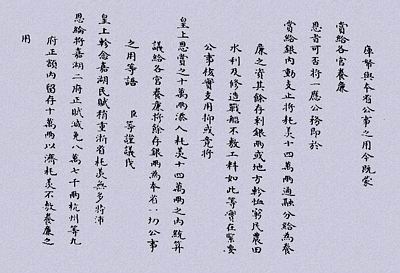 庫幣與本省公事之用令既蒙
賞給各官養廉
恩旨可否將一應公務即於
賞給銀內動支止將耗羨十四萬兩通融分給為養
廉之資其餘存剩銀兩或地方軫恤窮民農田
水利及修造戰船不敷工料如此等實在緊要
公事核實支用抑或竟將
皇上恩賞之十萬兩添入耗羨十四萬兩之內統算
議給各官養廉將餘存銀兩為本省一切公事
之用等語 臣等謹議伐
皇上軫念嘉湖民賦稍重浙省耗羨無多特沛
恩綸將嘉湖二府正賦減免八萬七千兩杭州等九
府正額內留存十萬兩以濟耗羨不敷養廉之
用